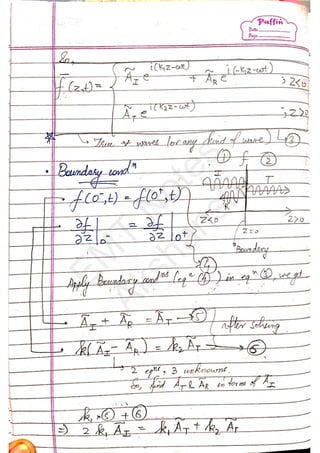 Puffin
Date
Page
So,
f̄(z,t) = { Ã_I e^{i(k₁z-ωt)} + Ã_R e^{i(-k₁z-ωt)} ; z<0
Ã_T e^{i(k₂z-ωt)} ; z>0
(for any kind of wave) ③
• Boundary condⁿ
① f ②
f(0⁻,t) = f(0⁺,t)
I T
R
∂f/∂z |0⁻ = ∂f/∂z |0⁺
z<0 z=0 z>0
Boundary
④
Apply Boundary cond^ns (eqⁿ ④) in eqⁿ ③, we get
Ã_I + Ã_R = Ã_T → ⑤
after solving
k₁(Ã_I - Ã_R) = k₂Ã_T → ⑥
2 eqns, 3 unknowns.
So, find Ã_T & Ã_R in terms of Ã_I
k₁×⑤ + ⑥
⇒ 2k₁Ã_I = k₁Ã_T + k₂Ã_T